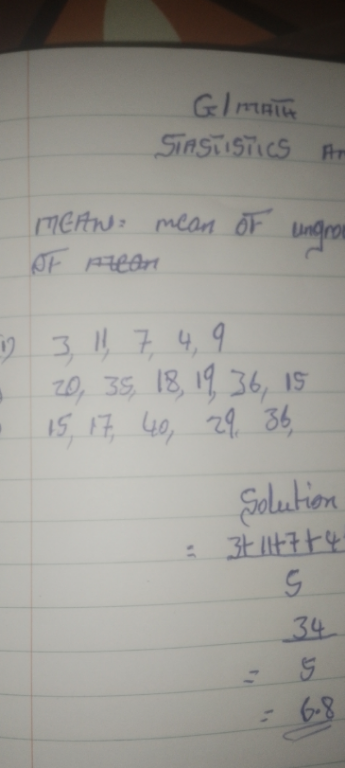 G/MATH
STASTISTICS An
MEAN: mean OF ungro
OF mean
1) 3, 11, 7, 4, 9
20, 35, 18, 19, 36, 15
15, 17, 40, 29, 36,
Solution
= 3+11+7+4+
5
34
= 5
= 6.8